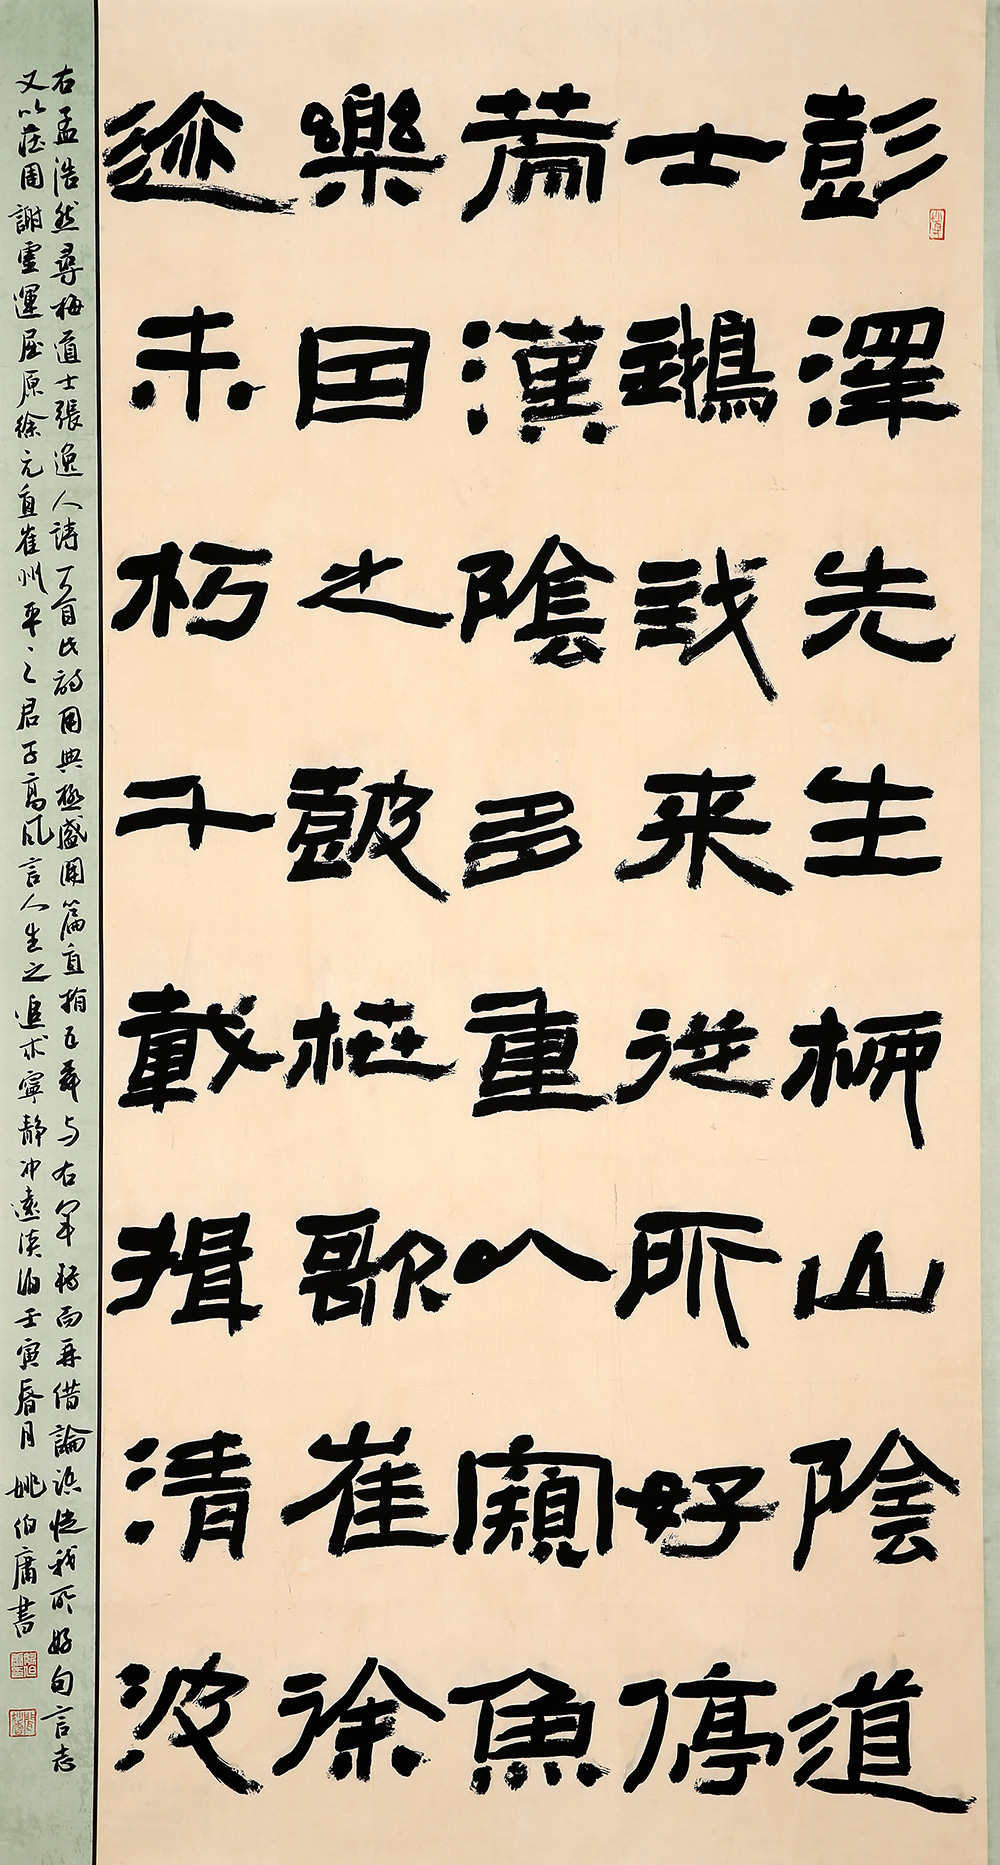 彭澤先生柳山陰道
士鵝我来從所好停
策漢陰多重以觀魚
樂因之鼓枻歌崔徐
迹未朽千載揖清波
右孟浩然尋梅道士張逸人詩一首此詩用典極盛開篇直指五柳与右軍轉而再借論語從我所好句言志
又以莊周謝靈運屈原徐元直崔州平之君子高風言人生之追求寧靜冲遠淡泊壬寅春月姚伯庸書